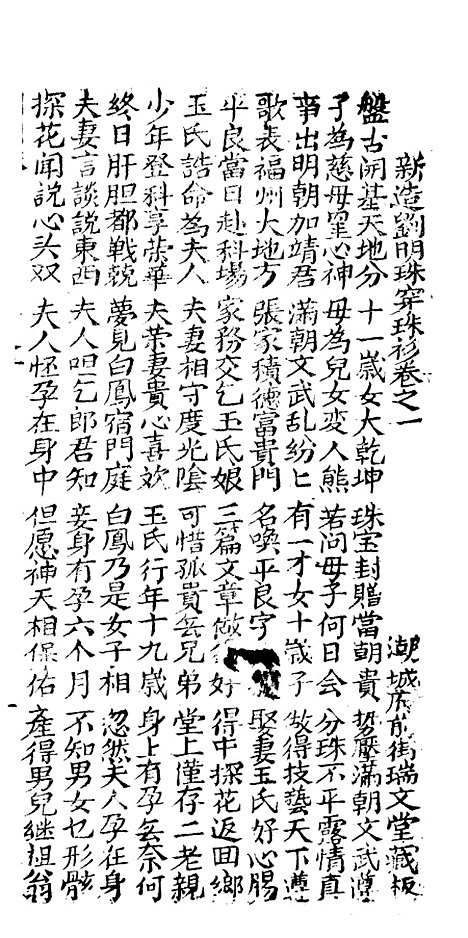 新造劉明珠穿珠衫卷之一 潮城府前街瑞文堂藏板
盤古開基天地分 十一歲女大乾坤 珠宝封贈當朝貴 势壓滿朝文武
子為慈母窒心神 母為兒女变人熊 若问母子何日会 分珠不平露情真
事出明朝加靖君 滿朝文武乱紛匕 有一才女十歲子 做得技藝天下
歌表福州大地方 張家積德富貴門 名喚平良字 娶妻玉氏好心腸
平良當日赴科場 家務交乞玉氏娘 三篇文章做得好 得中探花返回鄉
玉氏誥命為夫人 夫妻相守度光陰 可惜孤貴無兄弟 堂上僅存二老親
少年登科享荣華 夫荣妻貴心喜欢 玉氏行年十九歲 身上有孕無奈何
終日肝胆都战兢 夢見白鳳宿門庭 白鳳乃是女子相 忽然夫人孕在身
夫妻言談說東西 夫人呾乞郎君知 妾身有孕六个月 不知男女乜形骸
探花闻說心头双 夫人怀孕在身中 但愿神天相保佑 產得男兒継祖翁